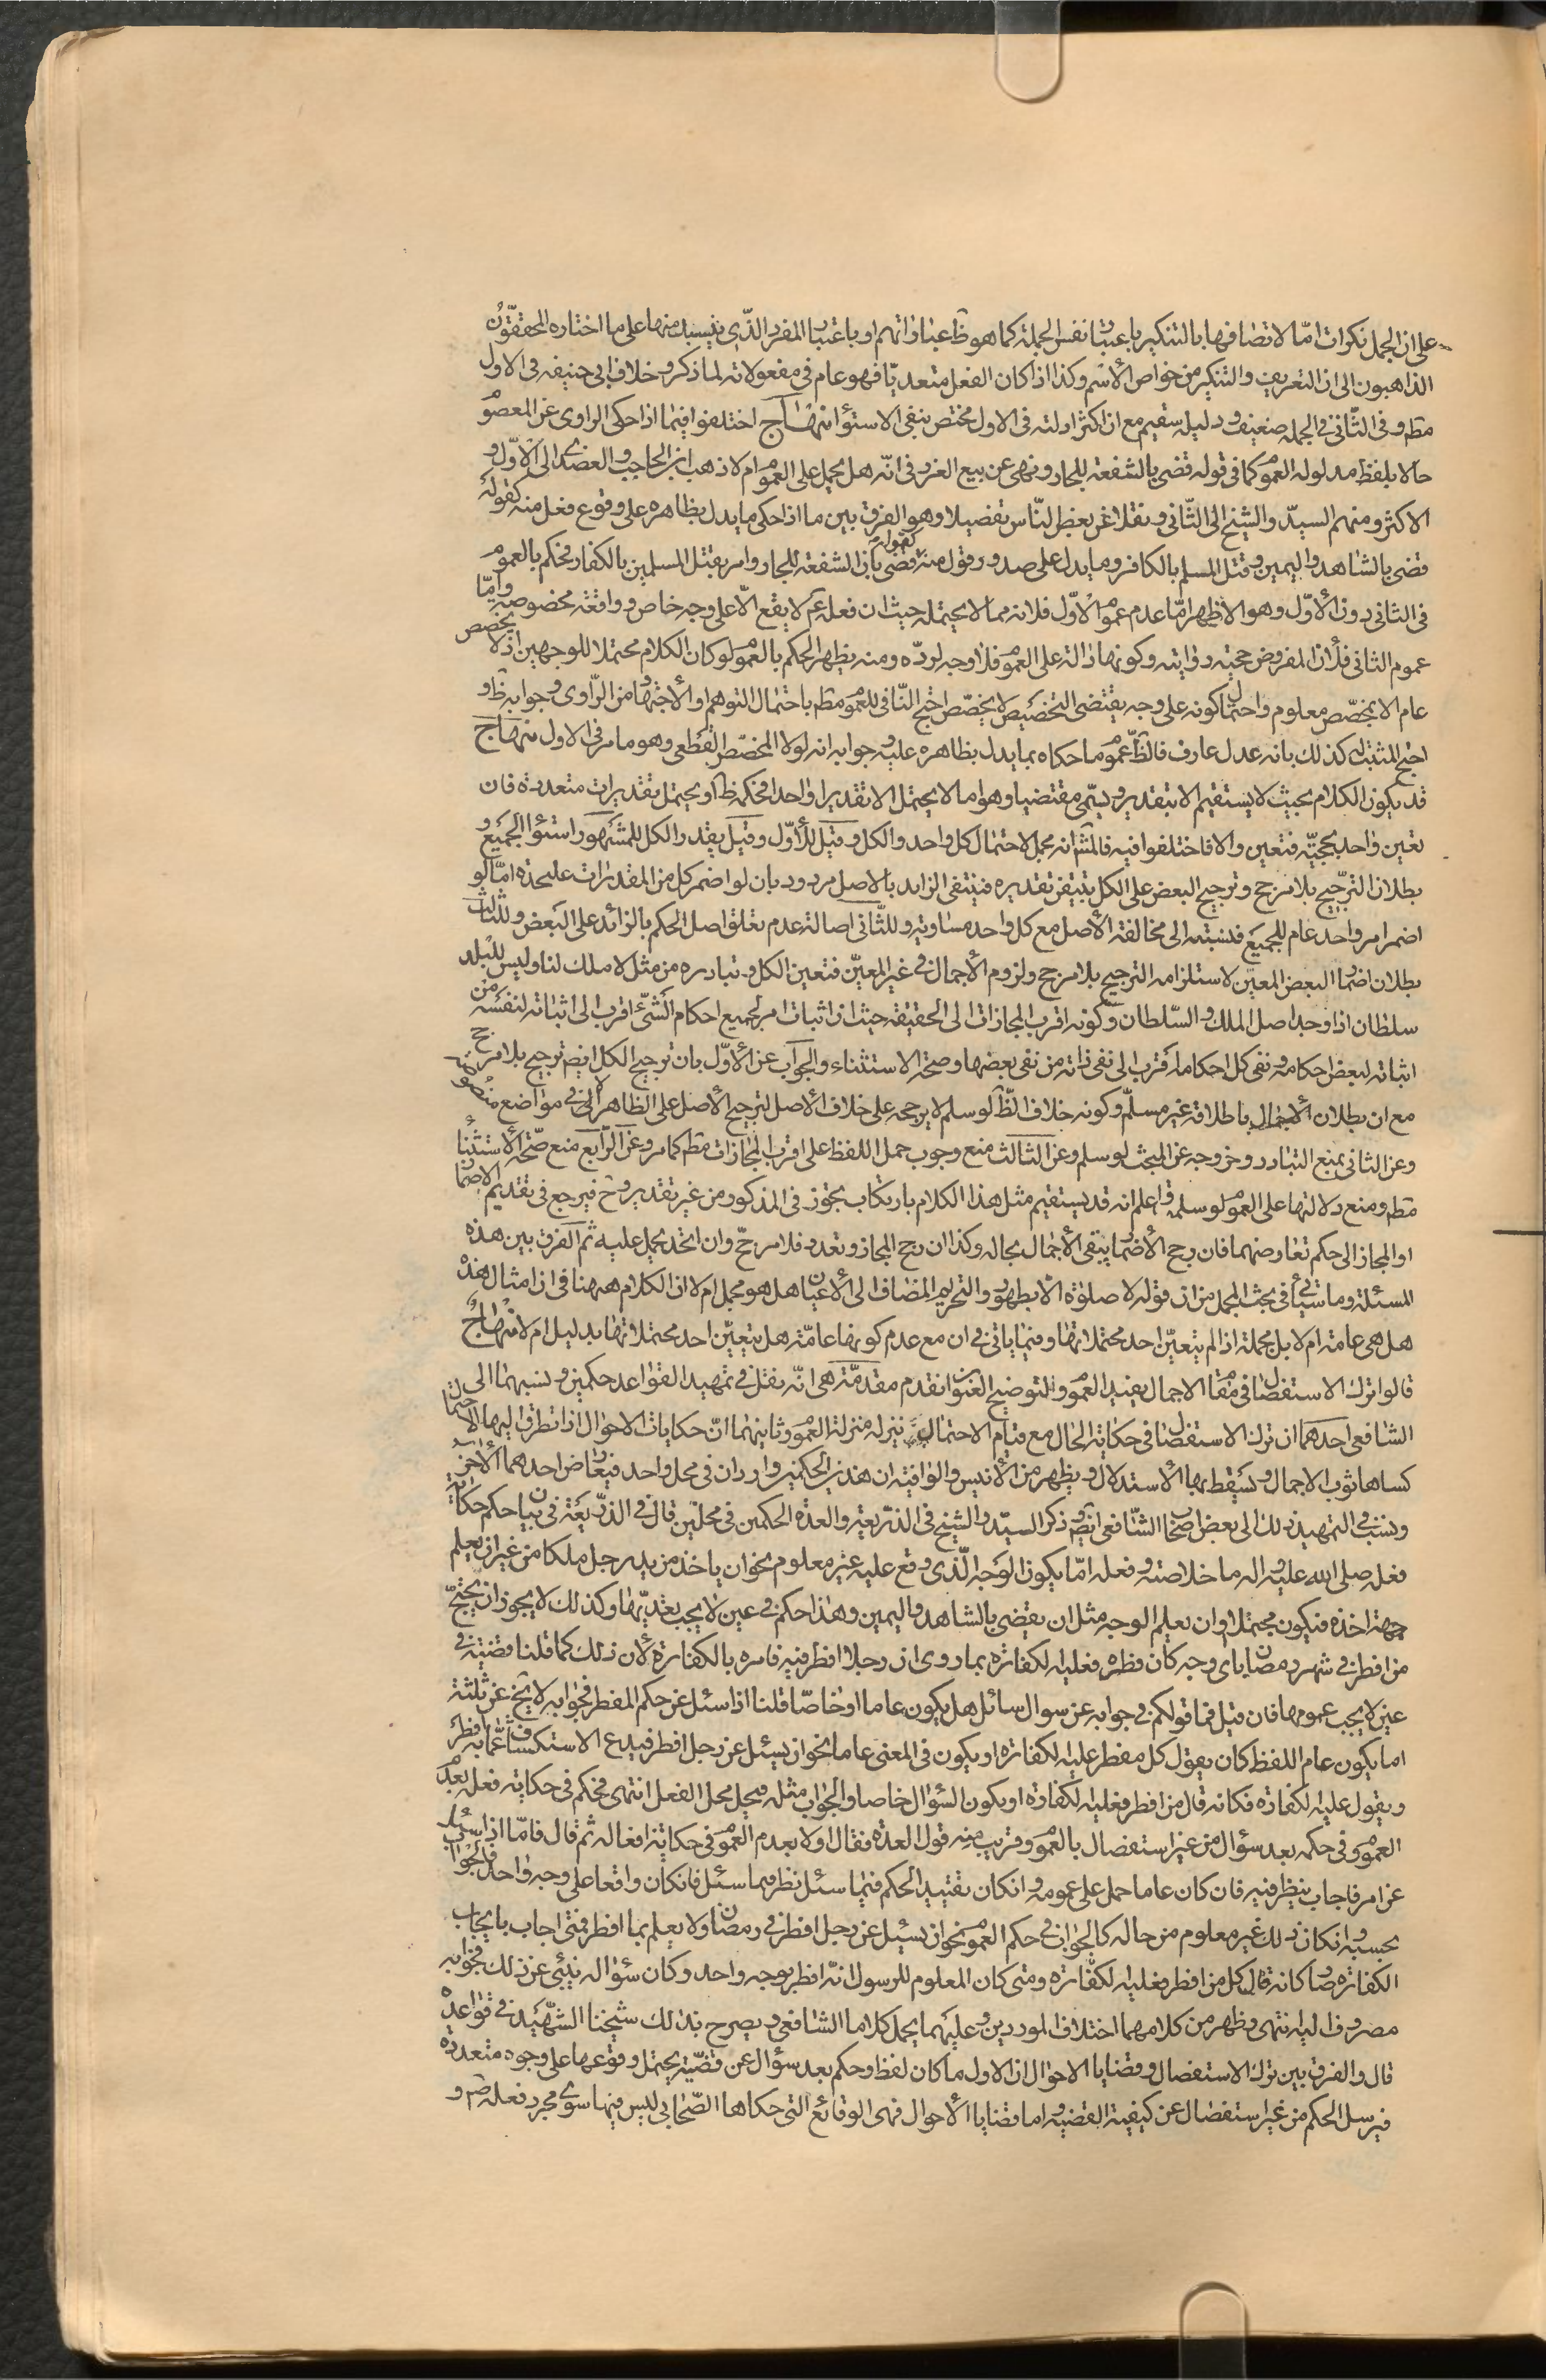 على ان الجمل نكرات امّا لاتصافها بالتنكير باعتبار نفس الجملة كما هو ظ عباراتهم او باعتبار المفرد الذى ينسبك منها على ما اختاره المحققون
الذاهبون الى ان التعريف والتنكير من خواص الاسم وكذا اذا كان الفعل متعديّا فهو عام فى مفعولاته لما ذكر وخلاف ابى حنيفه فى الاول
مظم وفى الثّانى فى الجملة ضعيف ودليله سقيم مع ان اكثر ادلته فى الاول مختص بنفى الاستواء منهاج اختلفوا فيما اذا حكى الراوى عن المعصوم
حالا بلفظ مدلوله العموم كما فى قوله قضى بالشفعة للجار ونهى عن بيع الغرر فى انّه هل يحمل على العموم ام لا ذهب ابن الحاجب والعضدى الى الاوّل و
الاكثر ومنهم السيّد والشيخ الى الثّانى ونقلا عن بعض النّاس تفصيلا وهو الفرق بين ما اذا حكى ما يدل بظاهره على وقوع فعل منه كقوله
قضى بالشاهد واليمين وقتل المسلم بالكافر وما يدل على صدور قول منه كقوله قضى بان الشفعة للجار وامر بقتل المسلمين بالكفار فحكم بالعموم
فى الثانى دون الاوّل وهو الاظهر امّا عدم عموم الاوّل فلانه مما لا يحتمله حيث ان فعله ع لا يقع الّا على وجه خاص وواقعة مخصوصة وامّا
عموم الثانى فلأن المفروض حجيّة روايته وكونها دالة على العموم فلا وجه لردّه ومنه يظهر الحكم بالعموم لو كان الكلام محتملا للوجهين اذ لا يخصص
عام الا بمخصّص معلوم واحتمال كونه على وجه يقتضى التخصيص لا يخصّص احتج النّافى للعموم مظم باحتمال التوهم او الاجتهاد من الرّاوى وجوابه ظ و
احتج المثبت له كذلك بانه عدل عارف فالظّ عموم ما حكاه بما يدل بظاهره عليه وجوابه انه لولا المخصّص القطعى وهو ما مر فى الاول منهاج
قد يكون الكلام بحيث لا يستقيم الا بتقدير ويسمّى مقتضيا وهو اما لا يحتمل الا تقديرا واحدا فحكمه ظ او يحتمل تقديرات متعددة فان
تعين واحد بحجيّة فتعين والا فاختلفوا فيه فالمش انه مجمل لاحتمال كل واحد والكل وقيل للأوّل وقيل يقدر الكل للمشهور استواء الجميع و
بطلان الترجيح بلا مرجح وترجيح البعض على الكل بتيقن تقديره فينتفى الزايد بالاصل مردود بان لو اضمر كل من المقدرات عليحده امّا لو
اضمر امر واحد عام للجميع فنسبته الى مخالفة الأصل مع كل واحد مساوية وللثّانى اصالة عدم تعلق اصل الحكم بالزائد على البعض وللثالث
بطلان اضمار البعض المعيّن لاستلزامه الترجيح بلا مرجح ولزوم الأجمال فى غير المعيّن فتعين الكل وتبادره من مثل لا ملك لنا وليس للبلد
سلطان اذا وجد اصل الملك والسّلطان وكونه اقرب المجازات الى الحقيقة حيث ان اثبات امر لجميع احكام الشّئ اقرب الى اثباته لنفسه من
اثباته لبعض احكامه ونفى كل احكامه اقرب الى نفى ذاته من نفى بعضها وصحة الاستثناء والجواب عن الأوّل بان ترجيح الكل ايضم ترجيح بلا مرجح
مع ان بطلان الأجمال باطلاقه غير مسلّم وكونه خلاف الظّ لو سلم لا يرجحه على خلاف الأصل لترجيح الأصل على الظاهر الا فى مواضع منصوصة
وعن الثانى بمنع التبادر وخروجه عن المبحث لو سلم وعن الثالث منع وجوب حمل اللفظ على اقرب المجازات مظم كما مر وعن الرّابع منع صحّة الأستثناء
مظم ومنع دلالتها على العموم لو سلم واعلم انه قد يستقيم مثل هذا الكلام بارتكاب تجوز فى المذكور من غير تقدير وح فيرجع فى تقديم الاضمار
او المجاز الى حكم تعارضهما فان رجح الأضمار يبقى الأجمال بحاله وكذا ان رجح المجاز وتعدد فلا مرجّح وان اتحد يحمل عليه ثم الفرق بين هذه
المسئلة وما سيأتى فى بحث المجمل من ان قوله لا صلوة الّا بطهور والتحريم المضاف الى الأعيان هل هو مجمل ام لا ان الكلام ههنا فى ان امثال هذه
هل هى عامة ام لا بل مجملة اذا لم يتعيّن احد محتملاتها وفيما ياتى فى ان مع عدم كونها عامّة هل يتعيّن احد محتملاتها بدليل ام لا منهاج
قالوا ترك الاستفصال فى مقام الاجمال يفيد العموم ولتوضيح العنوان نقدم مقدمّة هى انّه نقل فى تمهيد القواعد حكمين ونسبهما الى
الشافعى احدهما ان ترك الاستفصال فى حكاية الحال مع قيام الاحتمال ينزل منزلة العموم وثانيهما انّ حكايات الاحوال اذا تطرق اليها الاحتمال
كساها ثوب الاجمال وسقط بها الأستدلال ويظهر من الأنيس والوافية ان هذين الحكمين واردان فى محل واحد فيعارض احدهما الأخر
ونسب فى التمهيد ذلك الى بعض اصحاب الشّافعى ايضم وذكر السيّد والشيخ فى الذريعة والعدة الحكمين فى محلين قال فى الذّريعة فى بيان حكم حكاية
فعله صلى الله عليه واله ما خلاصته وفعله امّا يكون الوجه الّذى وقع عليه غير معلوم نحو ان ياخذ من يد رجل ملكا من غير ان يعلم
جهة اخذه فيكون مجتملا وان يعلم الوجه مثل ان يقضى بالشاهد واليمين وهذا حكم فى عين لا يجب تعديّها وكذلك لا يجوز ان يحتجّ
من افطر فى شهر رمضان باى وجه كان فطره فعليه الكفارة بما روى ان رجلا افطر فيه فامره بالكفارة لأن ذلك كما قلنا قضيّة فى
عين لا يجب عمومها فان قيل فما قولكم فى جوابه عن سوال سائل هل يكون عاما او خاصّا قلنا اذا سئل عن حكم المفطر فجوابه لا يخ عن ثلثة
اما يكون عام اللفظ كان يقول كل مفطر عليه الكفارة او يكون فى المعنى عاما نحو ان يسئل عن رجل افطر فيدع الاستكشاف عمّا به افطر
ويقول عليه الكفارة فكانه قال من افطر فعليه الكفارة او يكون السؤال خاصا والجواب مثله فيحل محل الفعل انتهى فحكم فى حكاية فعله بعدم
العموم وفى حكمه بعد سؤال من غير استفصال بالعموم وقريب منه قول العدة فقال اولا بعدم العموم فى حكاية افعاله ثم قال فامّا اذا سئل
عن امر فاجاب ينظر فيه فان كان عاما حمل على عمومه وان كان تقييد الحكم فيما سئل نظر فيما سئل فان كان واقعا على وجه واحد فالجواب
بحسبه وان كان ذلك غير معلوم من حاله كالجواب فى حكم العموم نحو ان يسئل عن رجل افطر فى رمضان ولا يعلم بما افطر فمتى اجاب بايجاب
الكفارة صار كانه قال كل من افطر فعليه الكفّارة ومتى كان المعلوم للرسول انّه افطر بوجه واحد وكان سؤاله ينبئ عن ذلك فجوابه
مصروف اليه انتهى ويظهر من كلامهما اختلاف الموردين وعليهما يحمل كلاما الشافعى ويصرح بذلك شيخنا الشّهيد فى قواعده
قال والفرق بين ترك الاستفصال وقضايا الاحوال ان الاول ما كان لفظ وحكم بعد سؤال عن قضيّة يحتمل وقوعها على وجوه متعددة
فيرسل الحكم من غير استفصال عن كيفية القضية واما قضايا الأحوال فهى الوقائع التى حكاها الصّحابى ليس فيها سوى مجرد فعله ص و